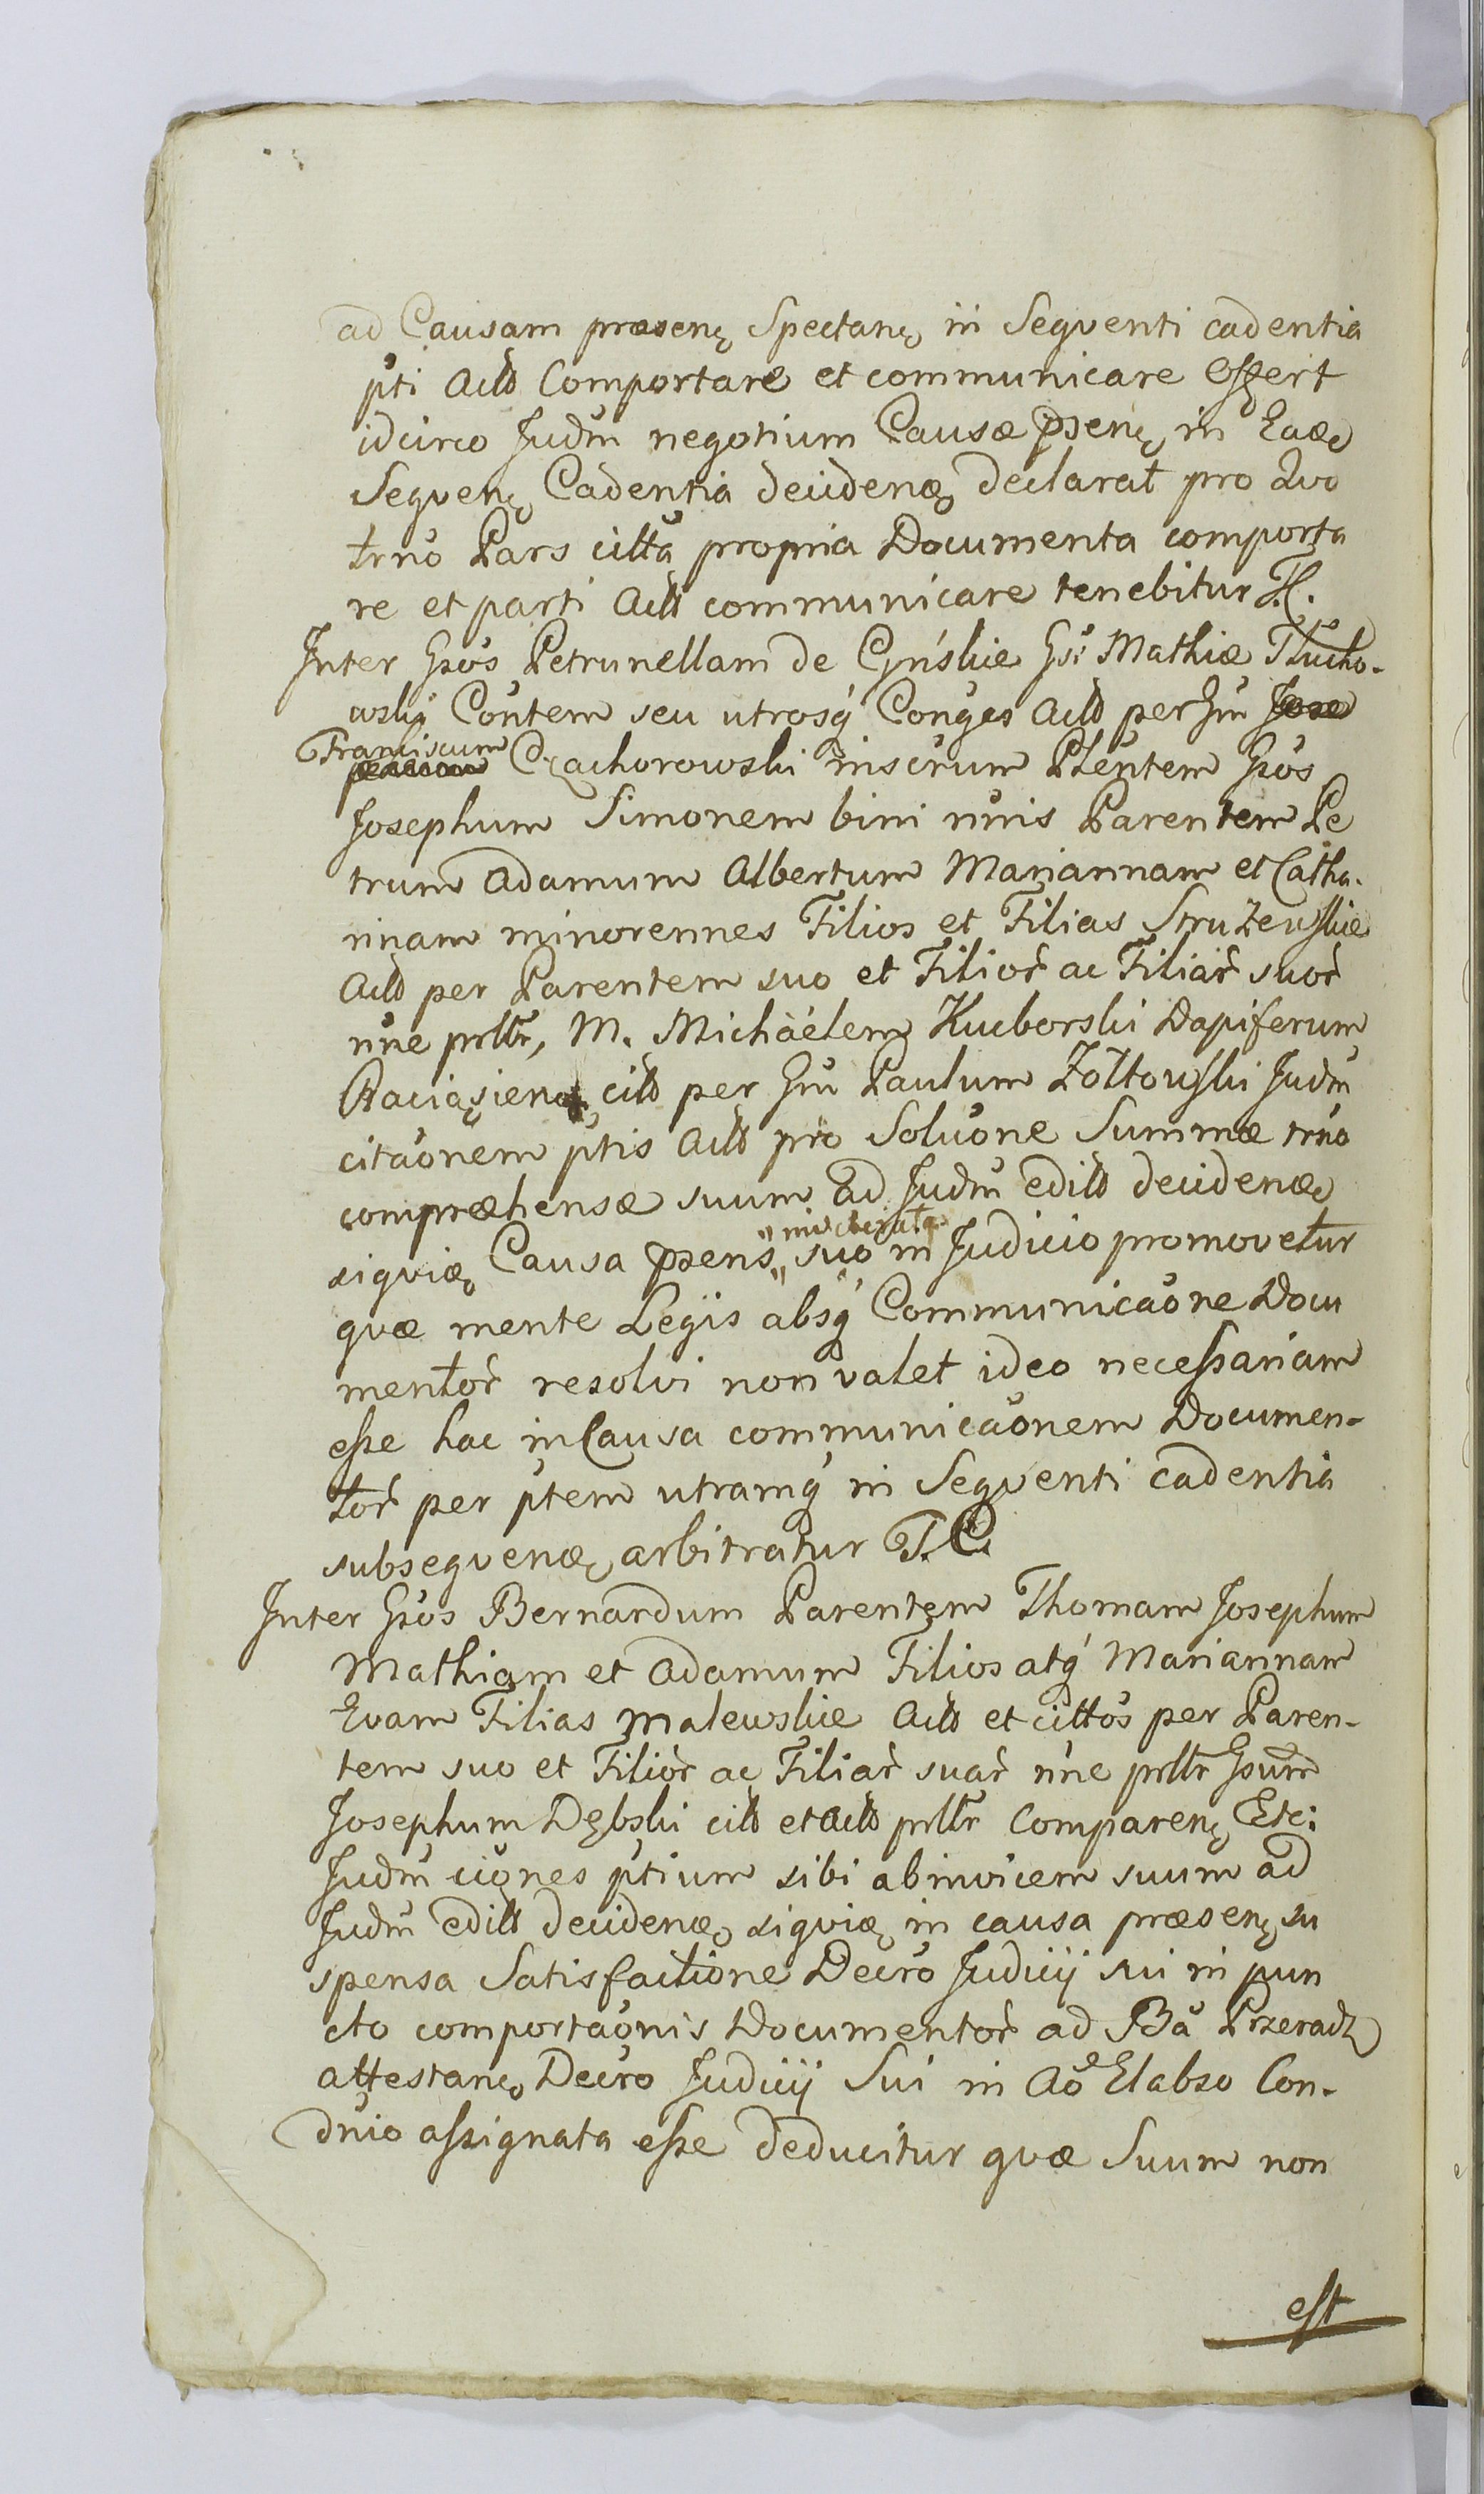 ad Causam præsenę Spectanę in Seqventi cadentia
pti Actt Comportare et communicare offert
idcirco Judm negotium Causæ psenę in Eadę
Seqvenę Cadentia decidenę declarat pro Quo
trno Pars citta propria Documenta comporta
re et parti Actt communicare tenebitur
Inter Gsos Petrunellam de Gsi Mathiæ Tłucho-
wski Contem seu utrosq Conges Actt per Gm
Franciscum Czachorowski Plentem Gsos
Josephum Simonem bini nnis Parentem Pe
trum Adamum Albertum Mariannam et Catha-
rinam minorennes Filios et Filias Struzewskie
Actt per Parentem suo et Filior ac Filiar suor
nne prltr, M. Michaelem Kucborski Dapiferum
citt per Gm Paulum Zołtowski Judm
citaonem ptis Actt pro Soluone Summæ trno
compræhensæ suum ad Judm editt decidenę
siqvię Causa psens suo in Judicio promovetur
qvæ mente Legis absq Communicaone Docu
mentor resolvi non valet ideo necessariam
esse hac in Causa communicaonem Documen-
tor per ptem utramq in Seqventi cadentia
subseqvenę arbitratur T.C.
Inter Gsos Bernardum Parentem Thomam Josephum
Mathiam et Adamum Filios atq Mariannam
Evam Filias Malewskie Actt et cittos per Paren-
tem suo et Filior ac Filiar suar nne prltr
Josephum Dębski citt et Actt prltr Comparenę Etc:
Judm ciones ptium sibi abinvicem suum ad
Judm editt decidenę siqvię in causa præsenę su
spensa Satisfactione Decro Judicij sui in pun
cto comportaonis Documentor ad Ba Przeradz
attestanę Decro Judicij Sui in Ao Elabso Con-
dnio assignata esse deducitur qvæ Suum non
est